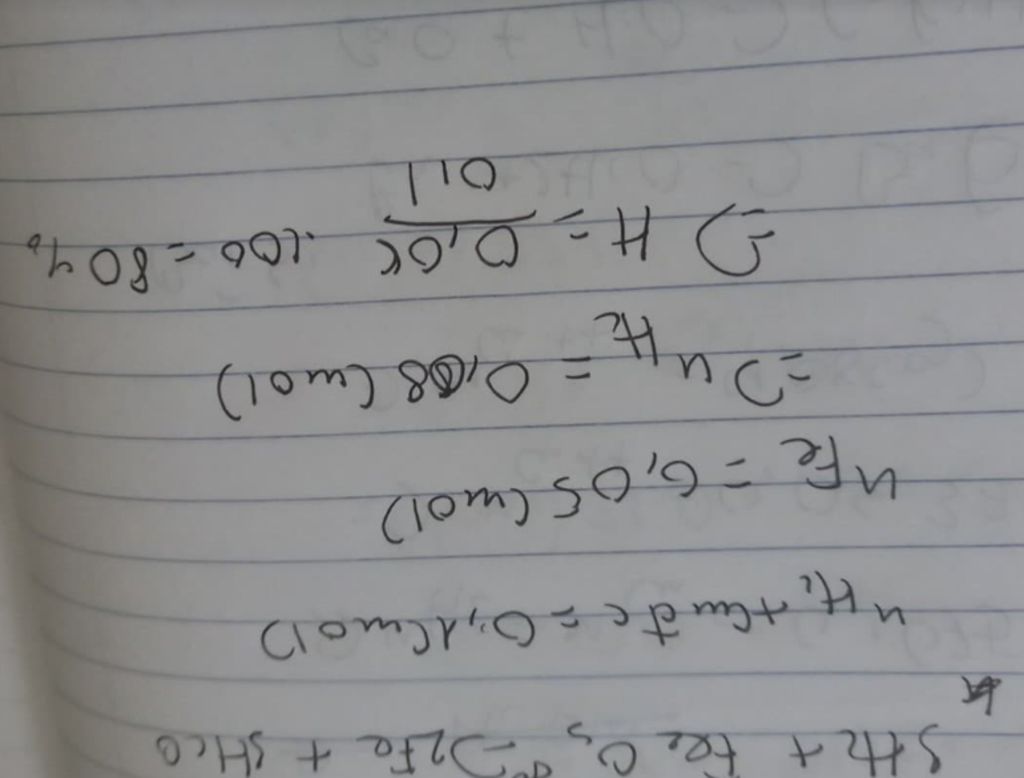 3H₂ + Fe₂O₃ -t°-> 2Fe + 3H₂O
n H₂ tìm đc = 0,1 (mol)
n Fe = 0,05 (mol)
=> n H₂ = 0,08 (mol)
=> H = 0,08 / 0,1 .100 = 80%